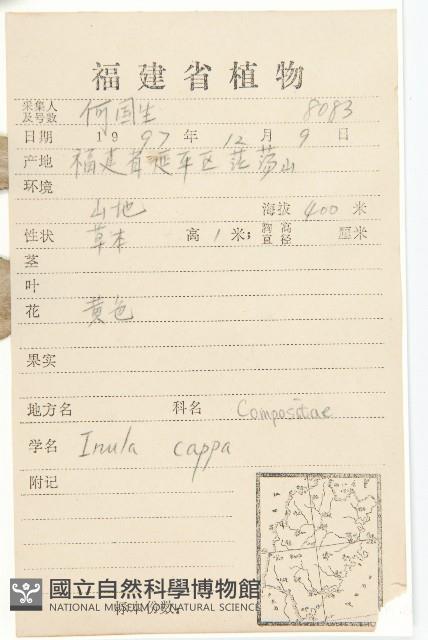 福建省植物
采集人及号数 何国生 8083
日期 1997年12月9日
产地 福建省延平区茫荡山
环境
山地 海拔 400 米
性状 草本 高 1 米; 胸高直径 厘米
茎
叶
花 黄色
果实
地方名 科名 Compositae
学名 Inula cappa
附记
國立自然科學博物館
NATIONAL MUSEUM OF NATURAL SCIENCE
标本份数: